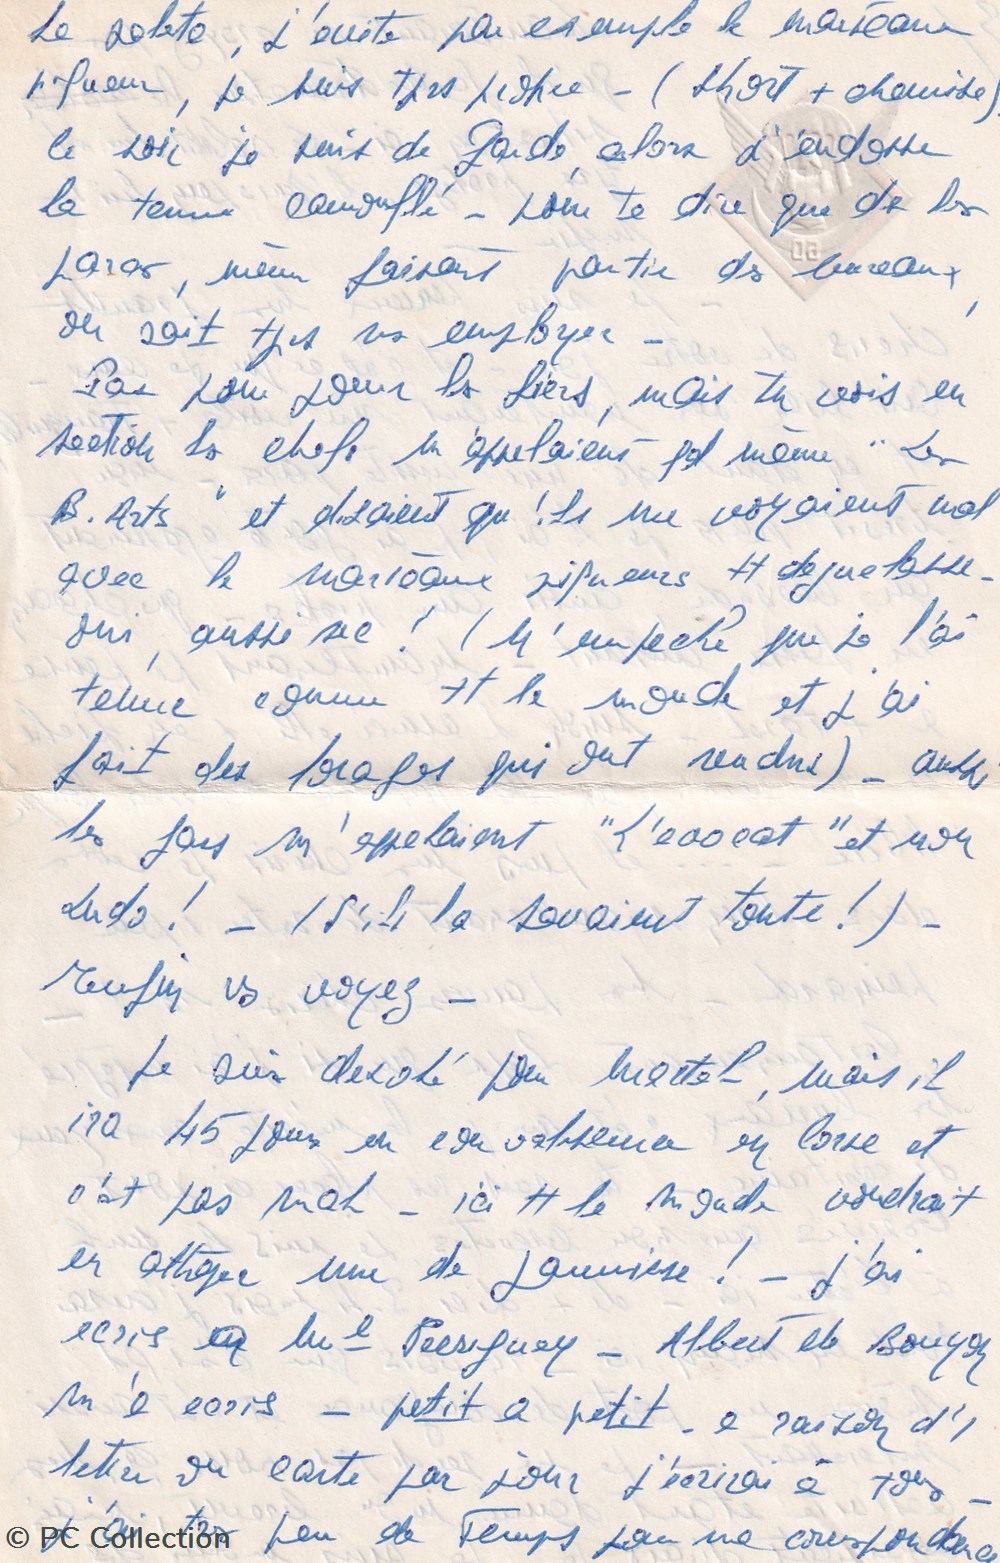 la saleté, j'évite par exemple le marteau
piqueur, je suis tjrs propre - (short + chemise),
le soir je suis de Garde, alors j'endosse
la tenue camouflé - pour te dire que ds les
paras, même faisant partie des bureaux,
on sait tjrs vs employer -
Pas pour jouer les fiers, mais tu vois en
section les chefs m'appelaient qd même "Les
B. Arts" et disaient qu'ils me voyaient mal
avec le marteaux piqueurs tt degueulasse -
oui, aussi sec! (N'empeche que je l'ai
tenue comme tt le monde et j'ai
fait des forages qui ont rendus) - aussi
les gars m'appelaient "L'avocat" et non
Ludo! - (S'ils la savaient toute!) -
Enfin vs voyez -
Je suis desolé pour Martel, mais il
ira 45 jours en convalescence en Corse et
c'est pas mal - ici tt le monde voudrait
en attraper une de jaunisse! - j'ai
ecris Perriguey - Albert de
m'a ecris - petit a petit - a raison d'1
lettre ou carte par jour j'écrirai à tous -
j'ai tres peu de Temps pour ma correspondance
© PC Collection
06